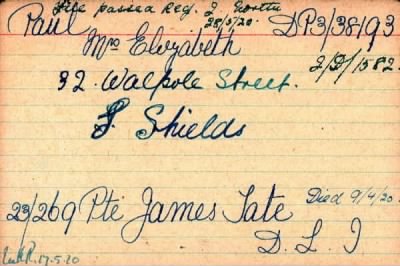 File passed Reg. 28/5/20.
Paul DP3/38193
Mrs Elizabeth 2/D/1582.
32. Walpole Street.
S. Shields
23/269 Pte James Tate Died 9/4/20.
D. L. I
17.5.20